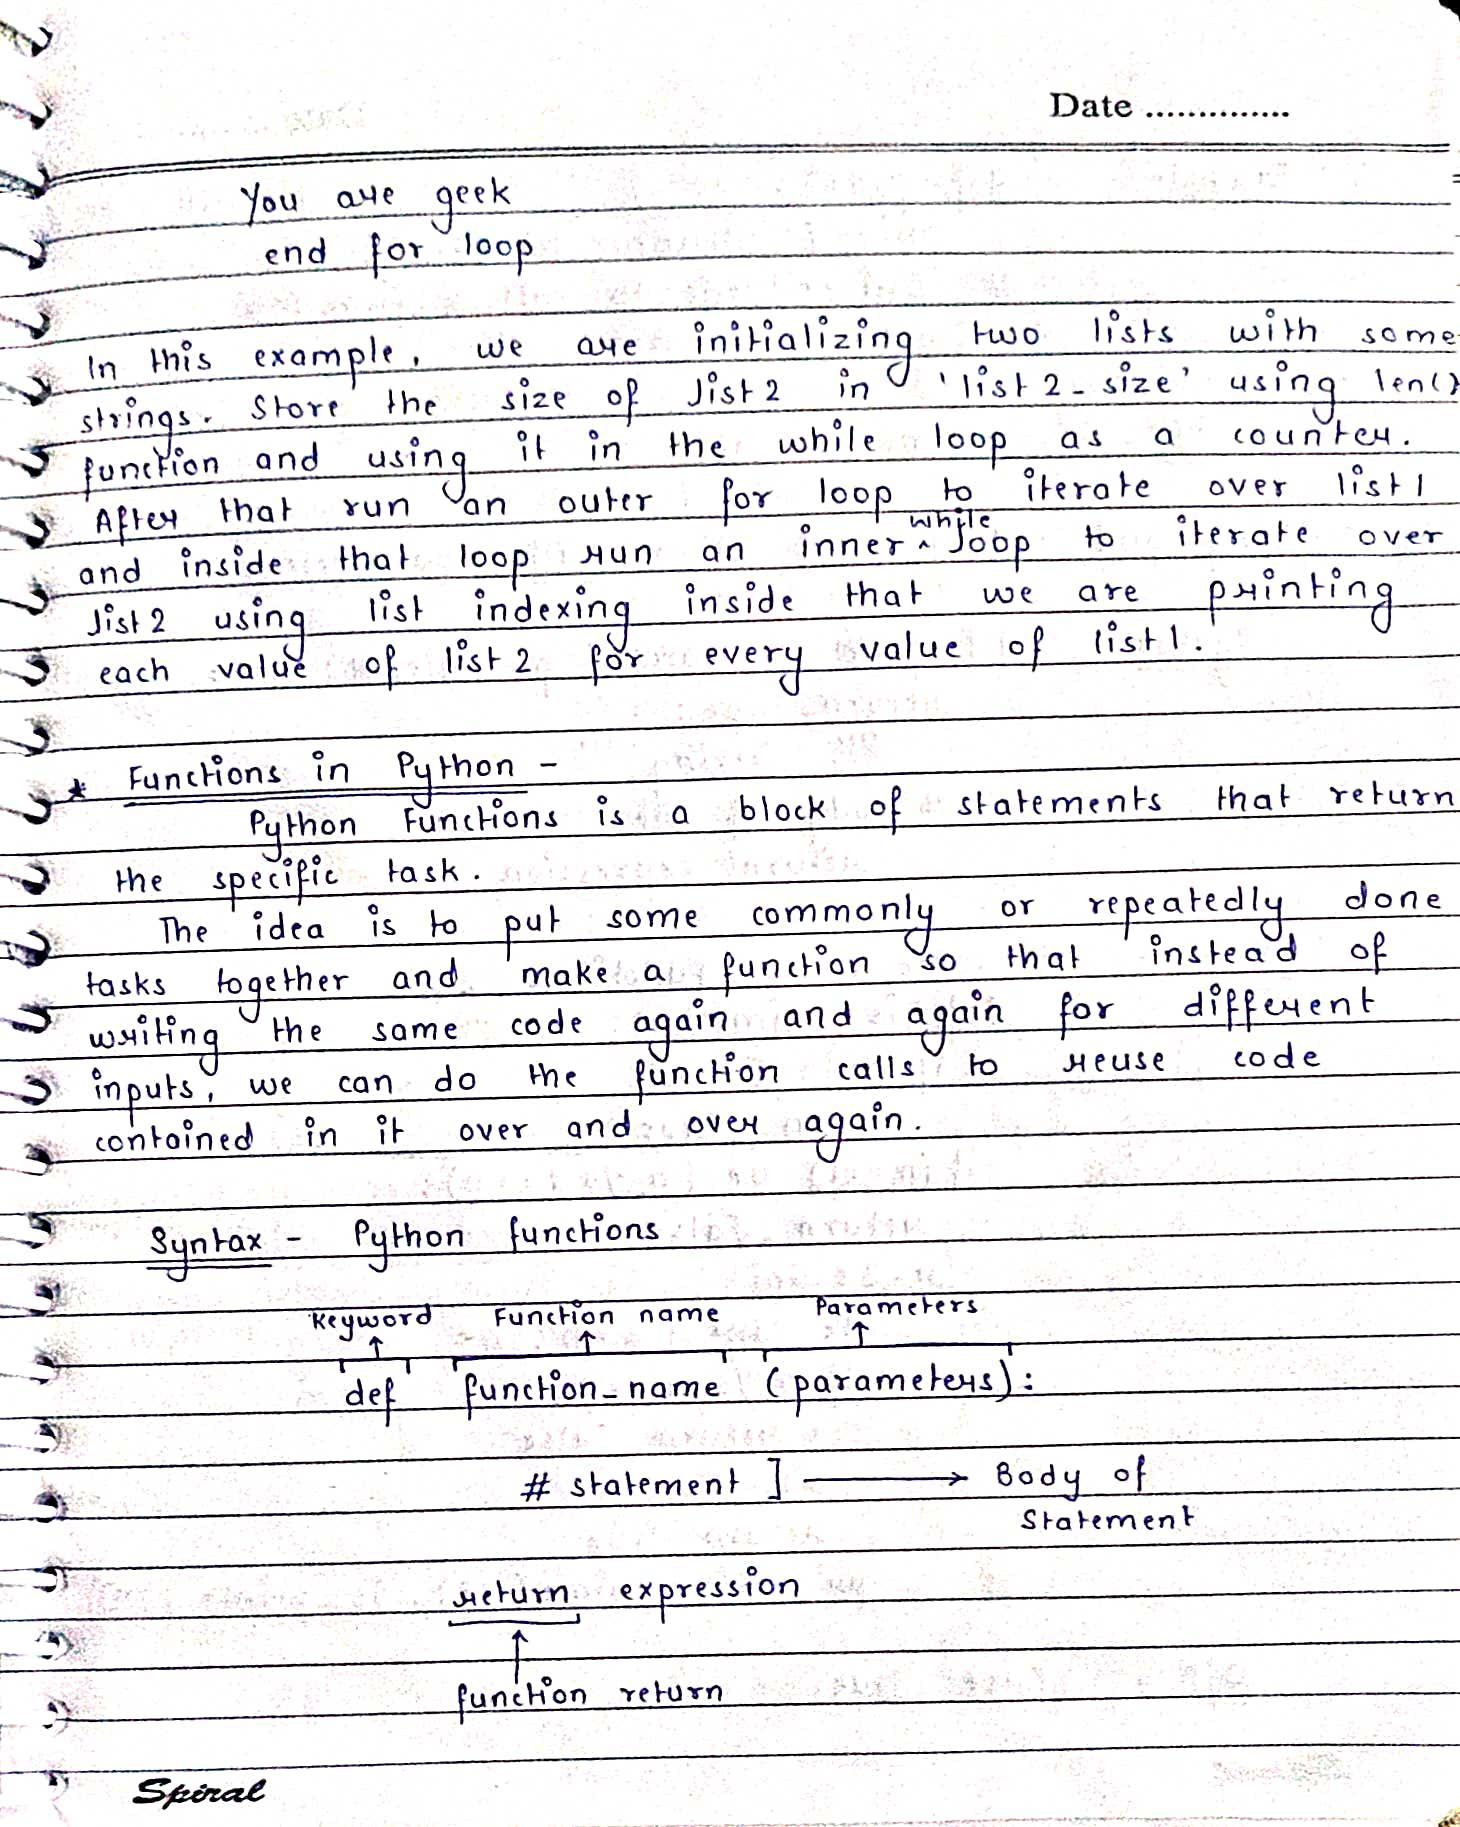 Date ..............
You are geek
end for loop
In this example, we are initializing two lists with some
strings. Store the size of list2 in 'list2_size' using len()
function and using it in the while loop as a counter.
After that run an outer for loop to iterate over list1
and inside that loop run an inner ^ while loop to iterate over
list2 using list indexing inside that we are printing
each value of list2 for every value of list1.
* Functions in Python -
Python Functions is a block of statements that return
the specific task.
The idea is to put some commonly or repeatedly done
tasks together and make a function so that instead of
writing the same code again and again for different
inputs, we can do the function calls to reuse code
contained in it over and over again.
Syntax - Python functions
Keyword Function name Parameters
def function_name (parameters):
# statement ] → Body of
Statement
return expression
function return
Spiral